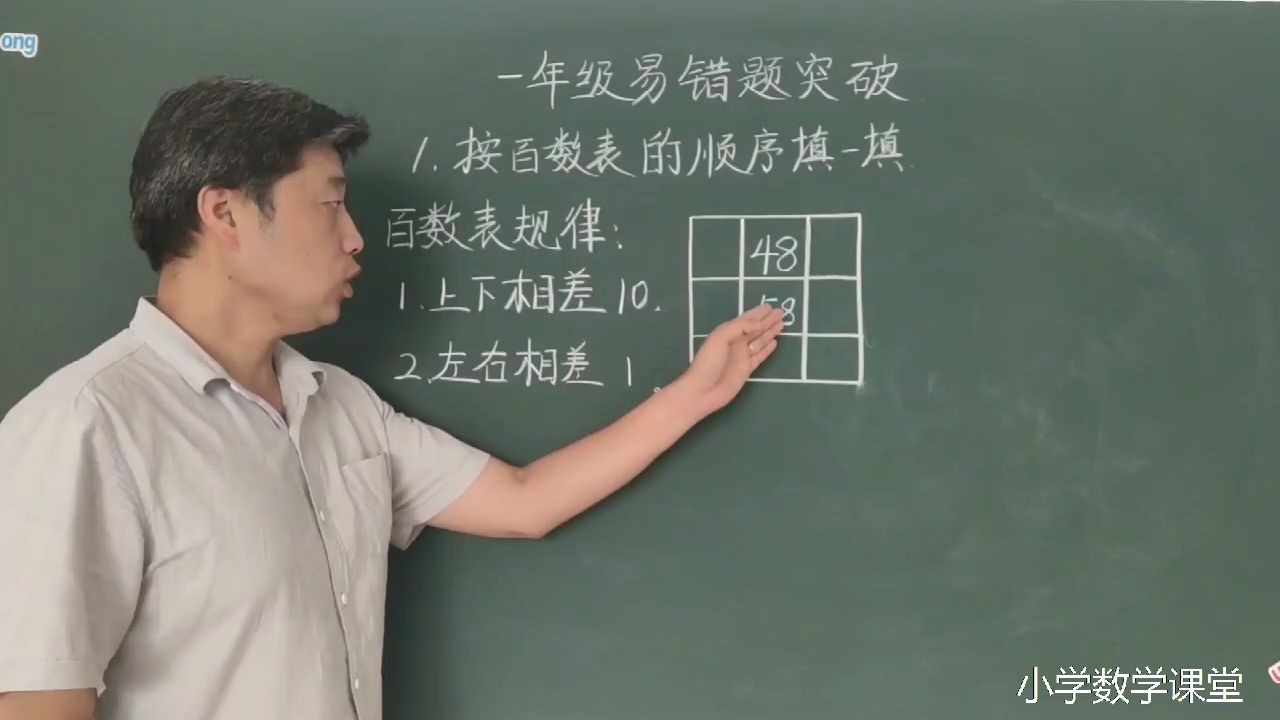 ong
一年级易错题突破
1.按百数表的顺序填一填.
百数表规律:
1.上下相差10.
2.左右相差1.
48
58
小学数学课堂